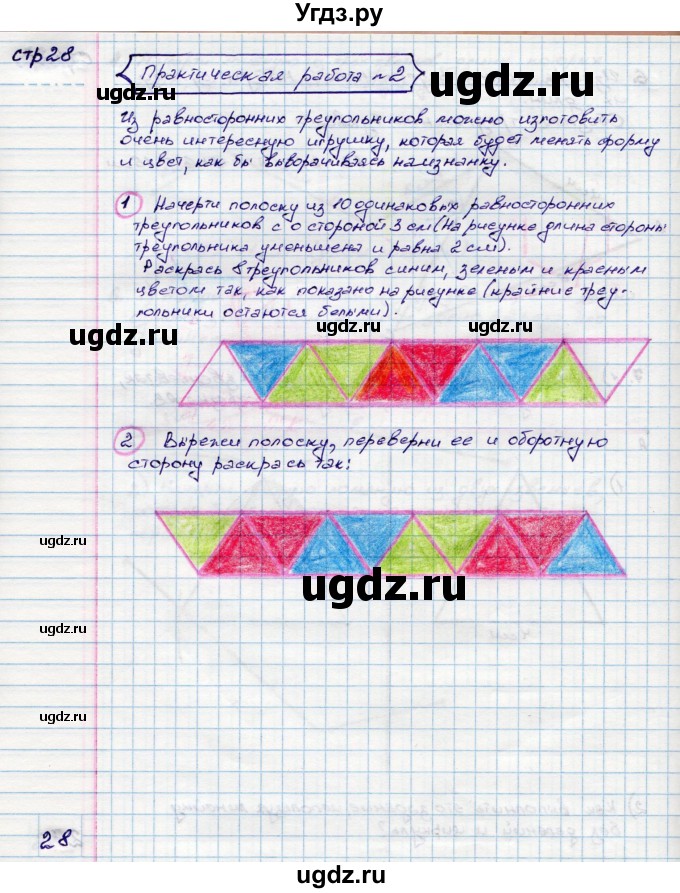 Угдз.ру
стр 28
Практическая работа №2
Из равносторонних треугольников можно изготовить
очень интересную игрушку, которая будет менять форму
и цвет, как бы выворачиваясь наизнанку.
1 Начерти полоску из 10 одинаковых равносторонних
треугольников с о стороной 3 см (На рисунке длина стороны
треугольника уменьшена и равна 2 см).
Раскрась 8 треугольников синим, зеленым и красным
цветом так, как показано на рисунке (крайние треу-
гольники остаются белыми).
ugdz.ru
ugdz.ru
ugdz.ru
ugdz.ru
2 Вырежи полоску, переверни ее и оборотную
сторону раскрась так:
ugdz.ru
ugdz.ru
ugdz.ru
ugdz.ru
28